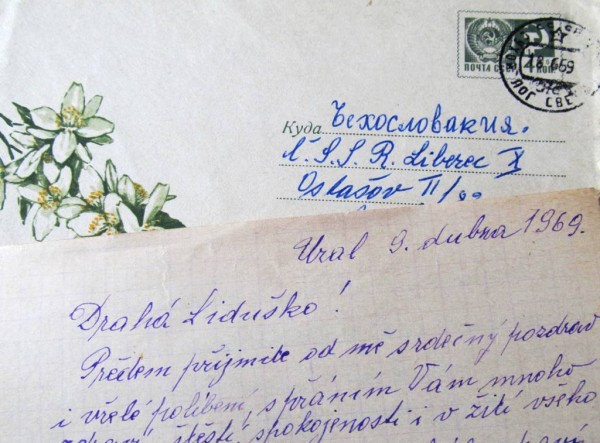 ПОЧТА СССР
Куда Чехословакия.
Č.S.S.R. Liberec X
Ostašov II/
Ural 9. dubna 1969.
Drahá Liduško!
Předem přijmite od mě srdečný pozdrav
i vřelé políbení, s přáním Vám mnoho
zdraví, štěstí, spokojenosti i v žití všeho